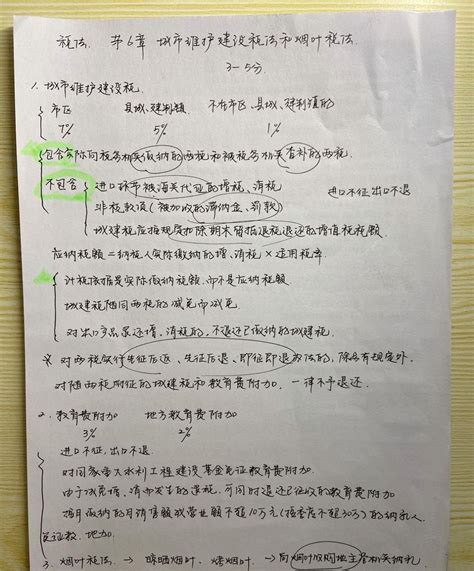 税法. 第6章 城市维护建设税法和烟叶税法.
3-5分
1. 城市维护建设税.
市区 县城、建制镇 不在市区、县城、建制镇的
7% 5% 1%
包含实际向税务机关缴纳的两税和被税务机关查补的两税.
不包含 进口环节被海关代征的增税、消税 进口不征出口不退
非税款项(被加收的滞纳金、罚款)
城建税应按规定扣除期末留抵退税退还的增值税税额.
应纳税额=纳税人实际缴纳的增、消税×适用税率.
计税依据是实际缴纳税额.而不是应纳税额
城建税随同两税的减免而减免.
对出口产品退还增、消税的,不退还已缴纳的城建税.
※ 对两税实行先征后返、先征后退、即征即退办法的,除另有规定外,
对随两税附征的城建税和教育费附加.一律不予退还.
2. 教育费附加 地方教育费附加
3% 2%
进口不征,出口不退.
对国家重大水利工程建设基金免征教育费附加.
由于减免增、消而发生的退税,可同时退还已征收的教育费附加
按月缴纳的月销售额或营业额不超10万元(按季度不超30万)的纳税人.
免征教、地加.
3. 烟叶税法. → 晾晒烟叶、烤烟叶. → 向烟叶收购地主管机关纳税